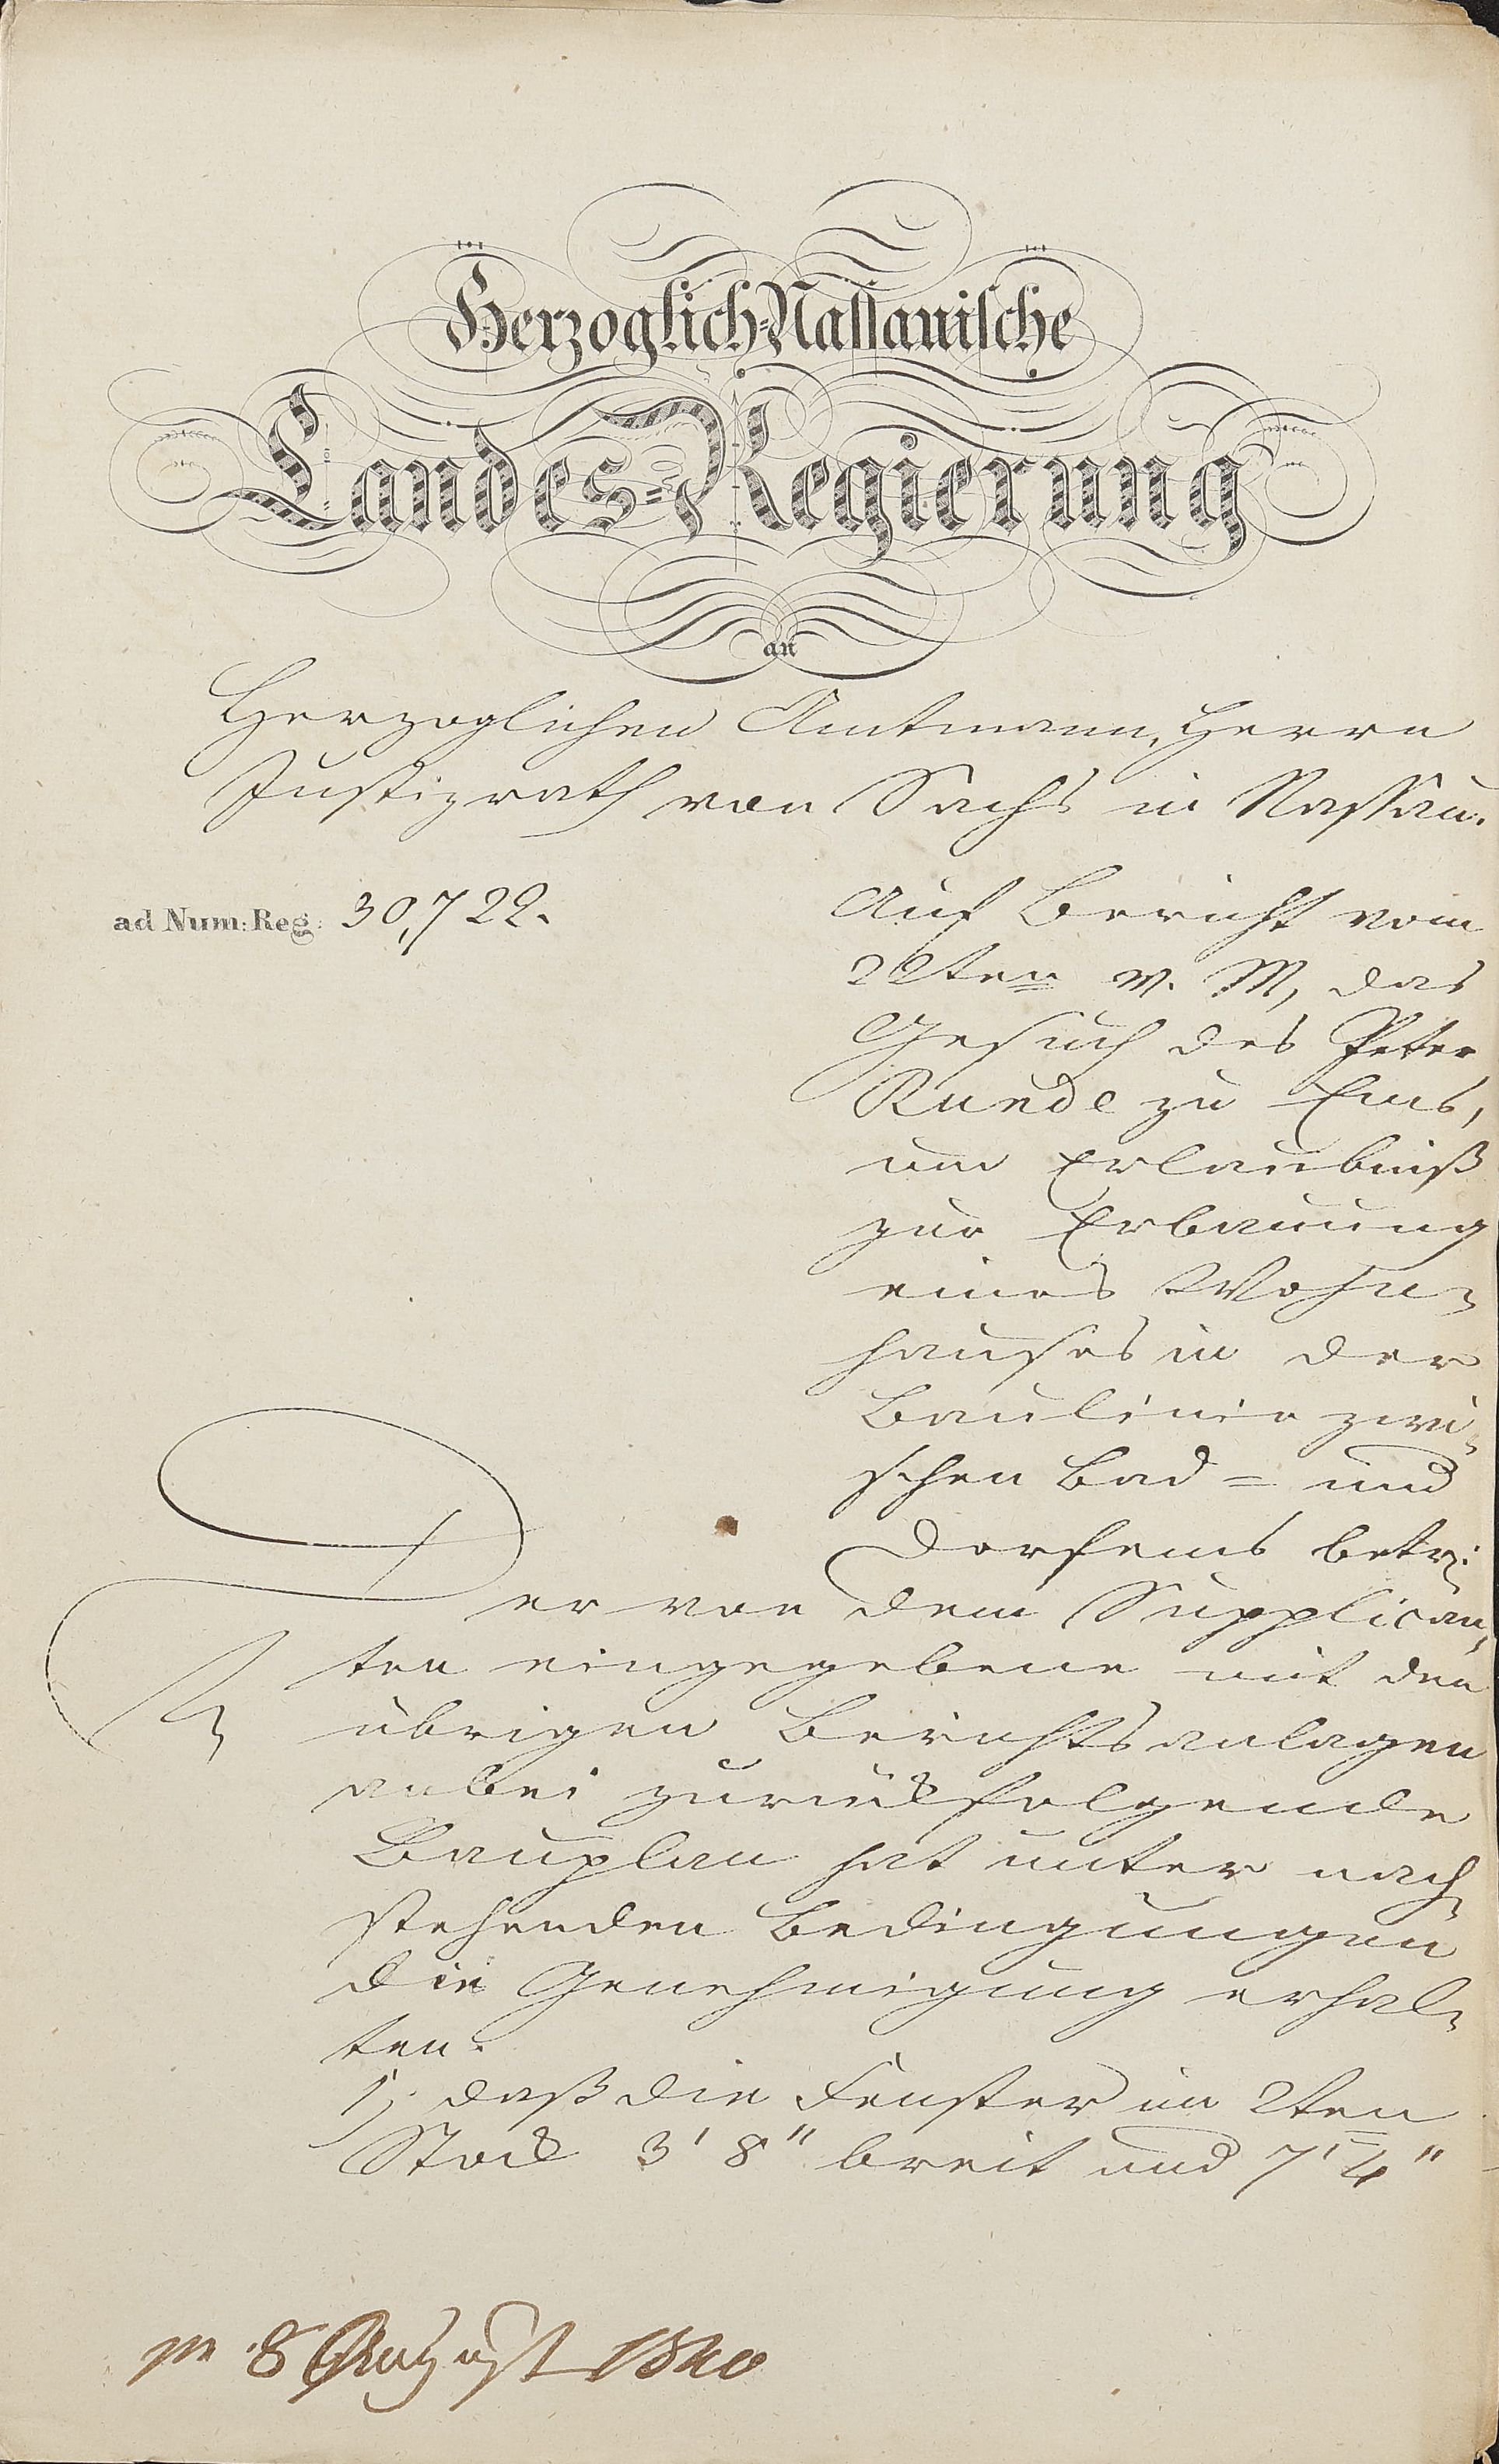 Herzoglich-Nassauische
Landes-Regierung
an
Herzoglichen Amtmann, Herrn
Justizrath von Sachs in Nassau.
ad Num: Reg: 30,722.
Auf Bericht vom
22ten v. M, das
Gesuch des Peter
Runde zu Ems,
um Erlaubniß
zur Erbauung
eines Wohn-
hauses in der
Baulinie zwi-
schen Bad- und
Dorfems betr:
Der von dem Supplican-
ten eingegebene mit den
übrigen Berichtsanlagen
anbei zurückfolgende
Bauplan hat unter nach-
stehenden Bedingungen
die Genehmigung erhal-
ten.
1, daß die Fenster im 2ten
Stock 3' 8" breit und 7' 4"
8 August 1840